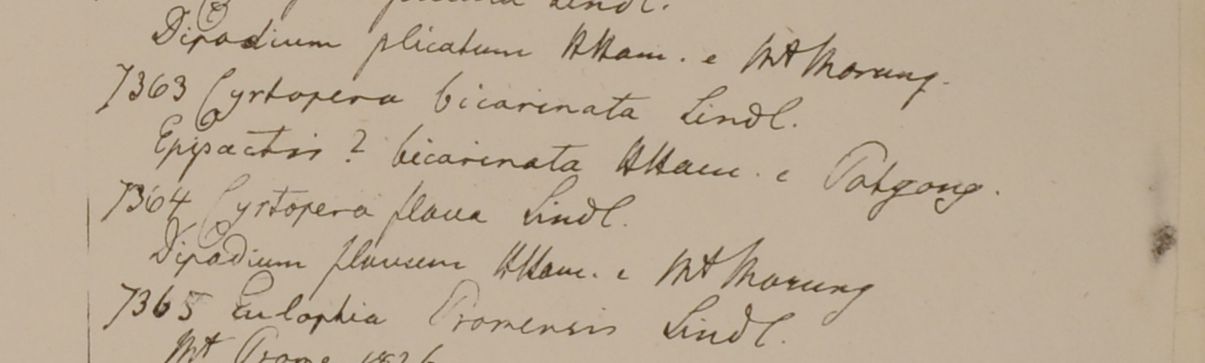 Lindl.
Dipodium plicatum HHam. e Mt Morung.
7363 Cyrtopera bicarinata Lindl.
Epipactis? bicarinata HHam. e Patgong.
7364 Cyrtopera flava Lindl.
Dipodium flavum HHam. e Mt Morung
7365 Eulophia Promensis Lindl.
Mt Prome 1826